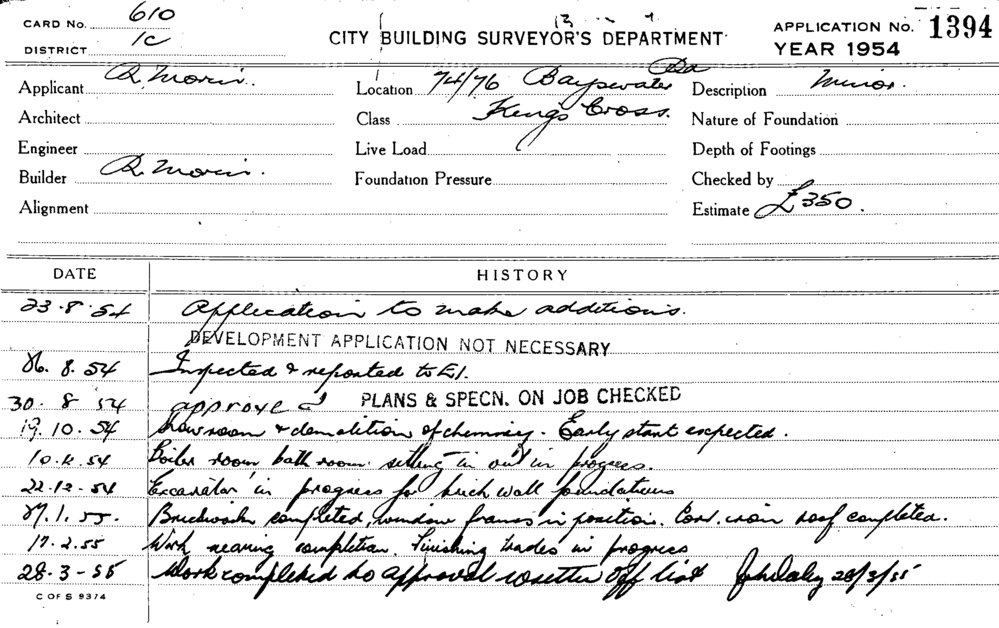 CARD No. 610
DISTRICT 1c
CITY BUILDING SURVEYOR'S DEPARTMENT
APPLICATION No. 1394
YEAR 1954
Applicant R. Morin. Location 74/76 Bayswater Rd Description Minor.
Architect Class Kings Cross. Nature of Foundation
Engineer Live Load Depth of Footings
Builder R. Morin. Foundation Pressure Checked by
Alignment Estimate £350.
DATE HISTORY
23.8.54 Application to make additions.
DEVELOPMENT APPLICATION NOT NECESSARY
8.54 Inspected & reported to
30.8 54 approved PLANS & SPECN. ON JOB CHECKED
19.10.54 Showroom & demolition of chimney. Early start expected.
54 Boiler room bath room. setting in progress.
22.12.54 in progress for brick wall foundations
1.55. Brickwork completed, window frames in position. Corr. iron roof completed.
17.2.55 Work nearing completion. Finishing trades in progress
28-3-55 Work completed to approval off list 28/3/55
C OF S 9374